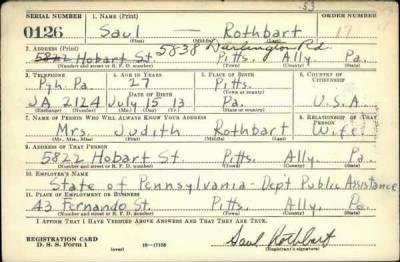 53
SERIAL NUMBER 1. NAME (Print) ORDER NUMBER
0126 Saul — Rothbart 17
5838 Darlington Rd
2. ADDRESS (Print)
5822 Hobart St. Pitts. Ally. Pa.
(Number and street or R. F. D. number) (Town) (County) (State)
3. TELEPHONE 4. AGE IN YEARS 5. PLACE OF BIRTH 6. COUNTRY OF CITIZENSHIP
Pgh. Pa. 27 Pitts.
DATE OF BIRTH (Town or county)
JA 2124 July 15 13 Pa. U.S.A.
(Exchange) (Number) (Mo.) (Day) (Yr.) (State or country)
7. NAME OF PERSON WHO WILL ALWAYS KNOW YOUR ADDRESS 8. RELATIONSHIP OF THAT PERSON
Mrs. Judith Rothbart Wife
(Mr., Mrs., Miss) (First) (Middle) (Last)
9. ADDRESS OF THAT PERSON
5822 Hobart St. Pitts. Ally. Pa.
(Number and street or R. F. D. number) (Town) (County) (State)
10. EMPLOYER'S NAME
State of Pennsylvania - Dep't Public Assistance
11. PLACE OF EMPLOYMENT OR BUSINESS
43 Fernando St. Pitts. Ally. Pa.
(Number and street or R. F. D. number) (Town) (County) (State)
I AFFIRM THAT I HAVE VERIFIED ABOVE ANSWERS AND THAT THEY ARE TRUE.
REGISTRATION CARD
D. S. S. Form 1 (over) 16—17105 Saul Rothbart